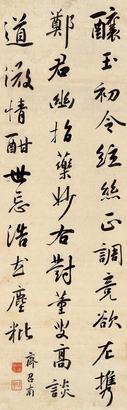 釀玉初令絃絲正調竟欲左攜
鄭君幽指藥妙右對董叟高談
道激情酣世忘浩出塵粃
齊召南